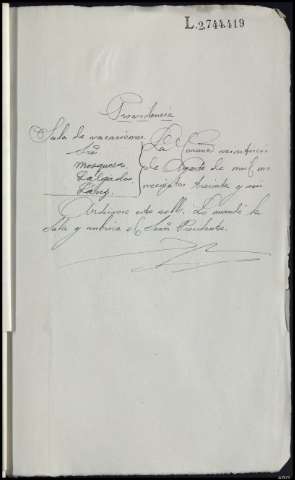 L.2.744.419
Providencia
Sala de vacaciones
Srs
Mosquera
Salgado
La Coruña veinticinco
de Agosto de mil no
vecientos treinta y seis
Archívese este rollo. Lo mandó la
Sala y rubrica el Señor Presidente.